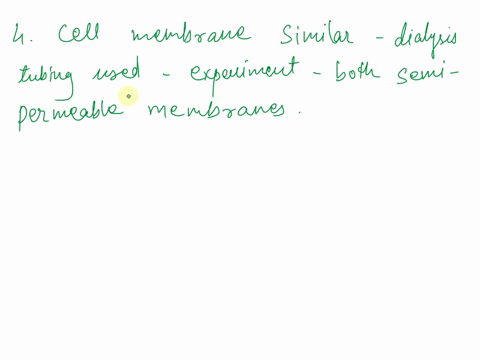 4. Cell membrane similar - dialysis
tubing used - experiment - both semi-
permeable membranes.